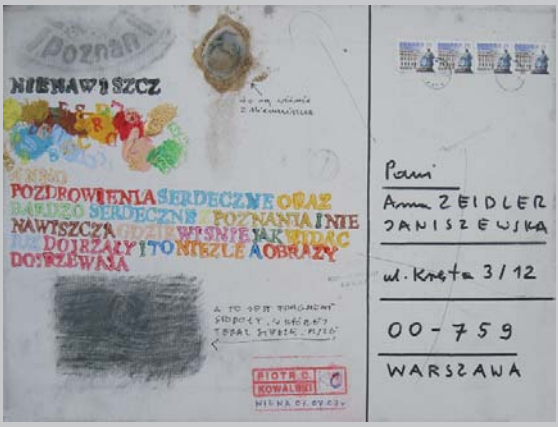 Poznań
NIENAWISZCZ
POZDROWIENIA SERDECZNE ORAZ
BARDZO SERDECZNE Z POZNANIA I NIE
NAWISZCZA GDZIE WIŚNIE JAK WIDAĆ
JUŻ DOJRZAŁY I TO NIEŹLE A OBRAZY
DOJRZEWAJĄ
A TO JEST FRAGMENT
PIOTR C.
KOWALSKI
Pani
Anna ZEIDLER
JANISZEWSKA
ul. Kręta 3/12
00-759
WARSZAWA